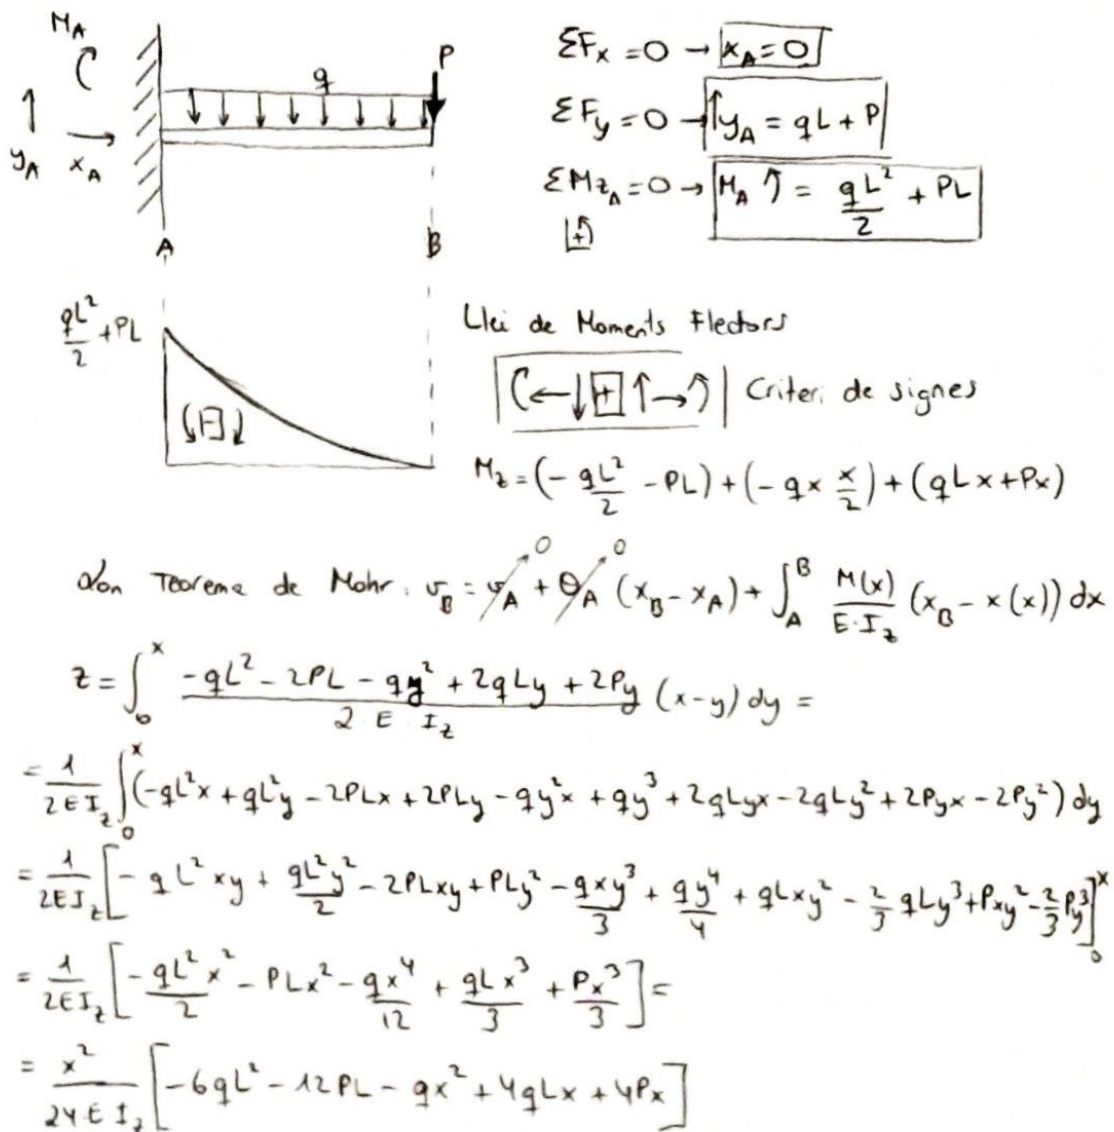 M_A
q
P
y_A
x_A
A
B
ΣF_x = 0 → x_A = 0
ΣF_y = 0 → ↑y_A = qL + P
ΣM_{z_A} = 0 → M_A ↰ = \frac{qL²}{2} + PL
+
\frac{qL²}{2} + PL
Llei de Moments Flectors
+ Criteri de signes
M_z = (-\frac{qL²}{2} - PL) + (-qx \frac{x}{2}) + (qLx + Px)
2on Teorema de Mohr: v_B = v_A 0 + θ_A 0 (x_B - x_A) + ∫_A^B \frac{M(x)}{E·I_z} (x_B - x(x)) dx
z = ∫_0^x \frac{-qL² - 2PL - qy² + 2qLy + 2Py}{2·E·I_z} (x-y) dy =
= \frac{1}{2EI_z} ∫_0^x (-qL²x + qL²y - 2PLx + 2PLy - qy²x + qy³ + 2qLyx - 2qLy² + 2Pyx - 2Py²) dy
= \frac{1}{2EI_z} [-qL²xy + \frac{qL²y²}{2} - 2PLxy + PLy² - \frac{qxy³}{3} + \frac{qy⁴}{4} + qLxy² - \frac{2}{3}qLy³ + Pxy² - \frac{2}{3}Py³]_0^x
= \frac{1}{2EI_z} [-\frac{qL²x²}{2} - PLx² - \frac{qx⁴}{12} + \frac{qLx³}{3} + \frac{Px³}{3}] =
= \frac{x²}{24·E·I_z} [-6qL² - 12PL - qx² + 4qLx + 4Px]